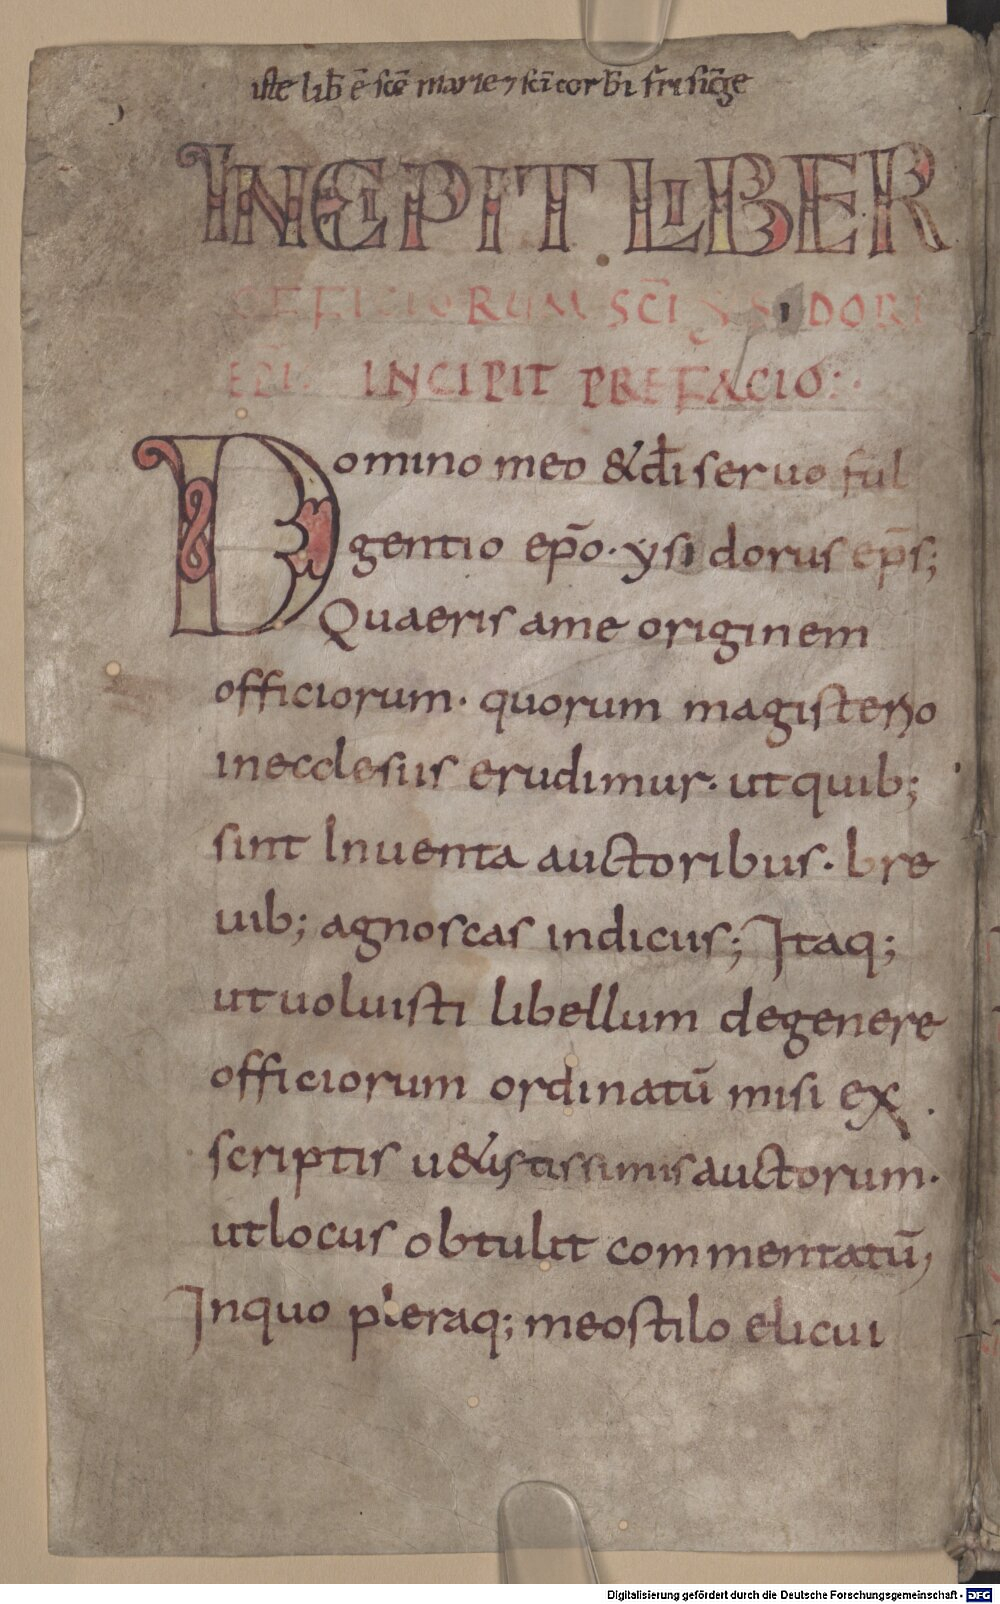 iste lib̄ ē scē marie ⁊ sc̄i corb̄i frisīge
INCIPIT LIBER
OFFICIORUM SC̄I YSIDORI
EPI. INCIPIT PREFACIO:·
Domino meo & d̄i seruo ful
gentio ep̄o· ysidorus ep̄s;
Quaeris ame originem
officiorum· quorum magisterio
inecclesiis erudimur· ut quib;
sint Inuenta auctoribus· bre
uib; agnoscas indicus; Itaq;
ut uoluisti libellum degenere
officiorum ordinatū misi ex
scriptis u&istissimis auctorum·
utlocus obtulit commentatū,
Inquo pleraq; meostilo elicui
Digitalisierung gefördert durch die Deutsche Forschungsgemeinschaft - DFG